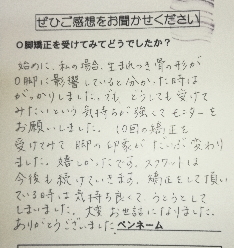 ぜひご感想をお聞かせください
O脚矯正を受けてみてどうでしたか?
始めに、私の場合、生まれつき骨の形が
O脚に影響していると分かった時は
がっかりしました。でも、どうしても受けて
みたいという気持ちが強くてモニターを
お願いしました。10回の矯正を
受けてみて 脚のLP家がだいぶ変わり
ました。嬉しかったです。スクワットは
今後も続けていきます。矯正をして頂い
ている時は気持ち良くて、うとうとして
しまいました。大変お世話になりました。
ありがとうございました ペンネーム